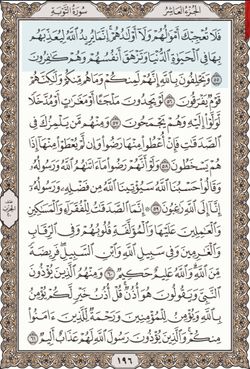 الجزء العاشر سورة التوبة
فَلَا تُعْجِبْكَ أَمْوَٰلُهُمْ وَلَآ أَوْلَٰدُهُمْ إِنَّمَا يُرِيدُ ٱللَّهُ لِيُعَذِّبَهُم
بِهَا فِى ٱلْحَيَوٰةِ ٱلدُّنْيَا وَتَزْهَقَ أَنفُسُهُمْ وَهُمْ كَٰفِرُونَ
٥٥ وَيَحْلِفُونَ بِٱللَّهِ إِنَّهُمْ لَمِنكُمْ وَمَا هُم مِّنكُمْ وَلَٰكِنَّهُمْ
قَوْمٌ يَفْرَقُونَ ٥٦ لَوْ يَجِدُونَ مَلْجَـًٔا أَوْ مَغَٰرَٰتٍ أَوْ مُدَّخَلًا
لَّوَلَّوْا۟ إِلَيْهِ وَهُمْ يَجْمَحُونَ ٥٧ وَمِنْهُم مَّن يَلْمِزُكَ فِى
ٱلصَّدَقَٰتِ فَإِنْ أُعْطُوا۟ مِنْهَا رَضُوا۟ وَإِن لَّمْ يُعْطَوْا۟ مِنْهَآ إِذَا
هُمْ يَسْخَطُونَ ٥٨ وَلَوْ أَنَّهُمْ رَضُوا۟ مَآ ءَاتَىٰهُمُ ٱللَّهُ وَرَسُولُهُۥ
وَقَالُوا۟ حَسْبُنَا ٱللَّهُ سَيُؤْتِينَا ٱللَّهُ مِن فَضْلِهِۦ وَرَسُولُهُۥٓ
إِنَّآ إِلَى ٱللَّهِ رَٰغِبُونَ ٥٩ إِنَّمَا ٱلصَّدَقَٰتُ لِلْفُقَرَآءِ وَٱلْمَسَٰكِينِ
وَٱلْعَٰمِلِينَ عَلَيْهَا وَٱلْمُؤَلَّفَةِ قُلُوبُهُمْ وَفِى ٱلرِّقَابِ
وَٱلْغَٰرِمِينَ وَفِى سَبِيلِ ٱللَّهِ وَٱبْنِ ٱلسَّبِيلِ فَرِيضَةً
مِّنَ ٱللَّهِ وَٱللَّهُ عَلِيمٌ حَكِيمٌ ٦٠ وَمِنْهُمُ ٱلَّذِينَ يُؤْذُونَ
ٱلنَّبِىَّ وَيَقُولُونَ هُوَ أُذُنٌ قُلْ أُذُنُ خَيْرٍ لَّكُمْ يُؤْمِنُ
بِٱللَّهِ وَيُؤْمِنُ لِلْمُؤْمِنِينَ وَرَحْمَةٌ لِّلَّذِينَ ءَامَنُوا۟
مِنكُمْ وَٱلَّذِينَ يُؤْذُونَ رَسُولَ ٱللَّهِ لَهُمْ عَذَابٌ أَلِيمٌ ٦١
١٩٦